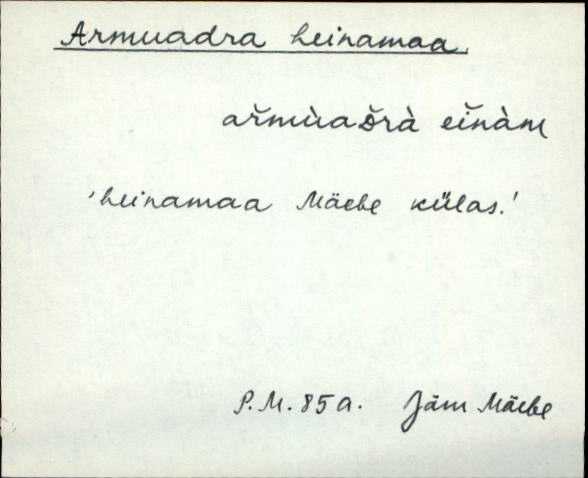 Armuadra heinamaa.
ar̆mùaᴅ̆rà eĭnàm
'heinamaa Mäebe külas.'
P.M. 85 a. Jäm Mäebe